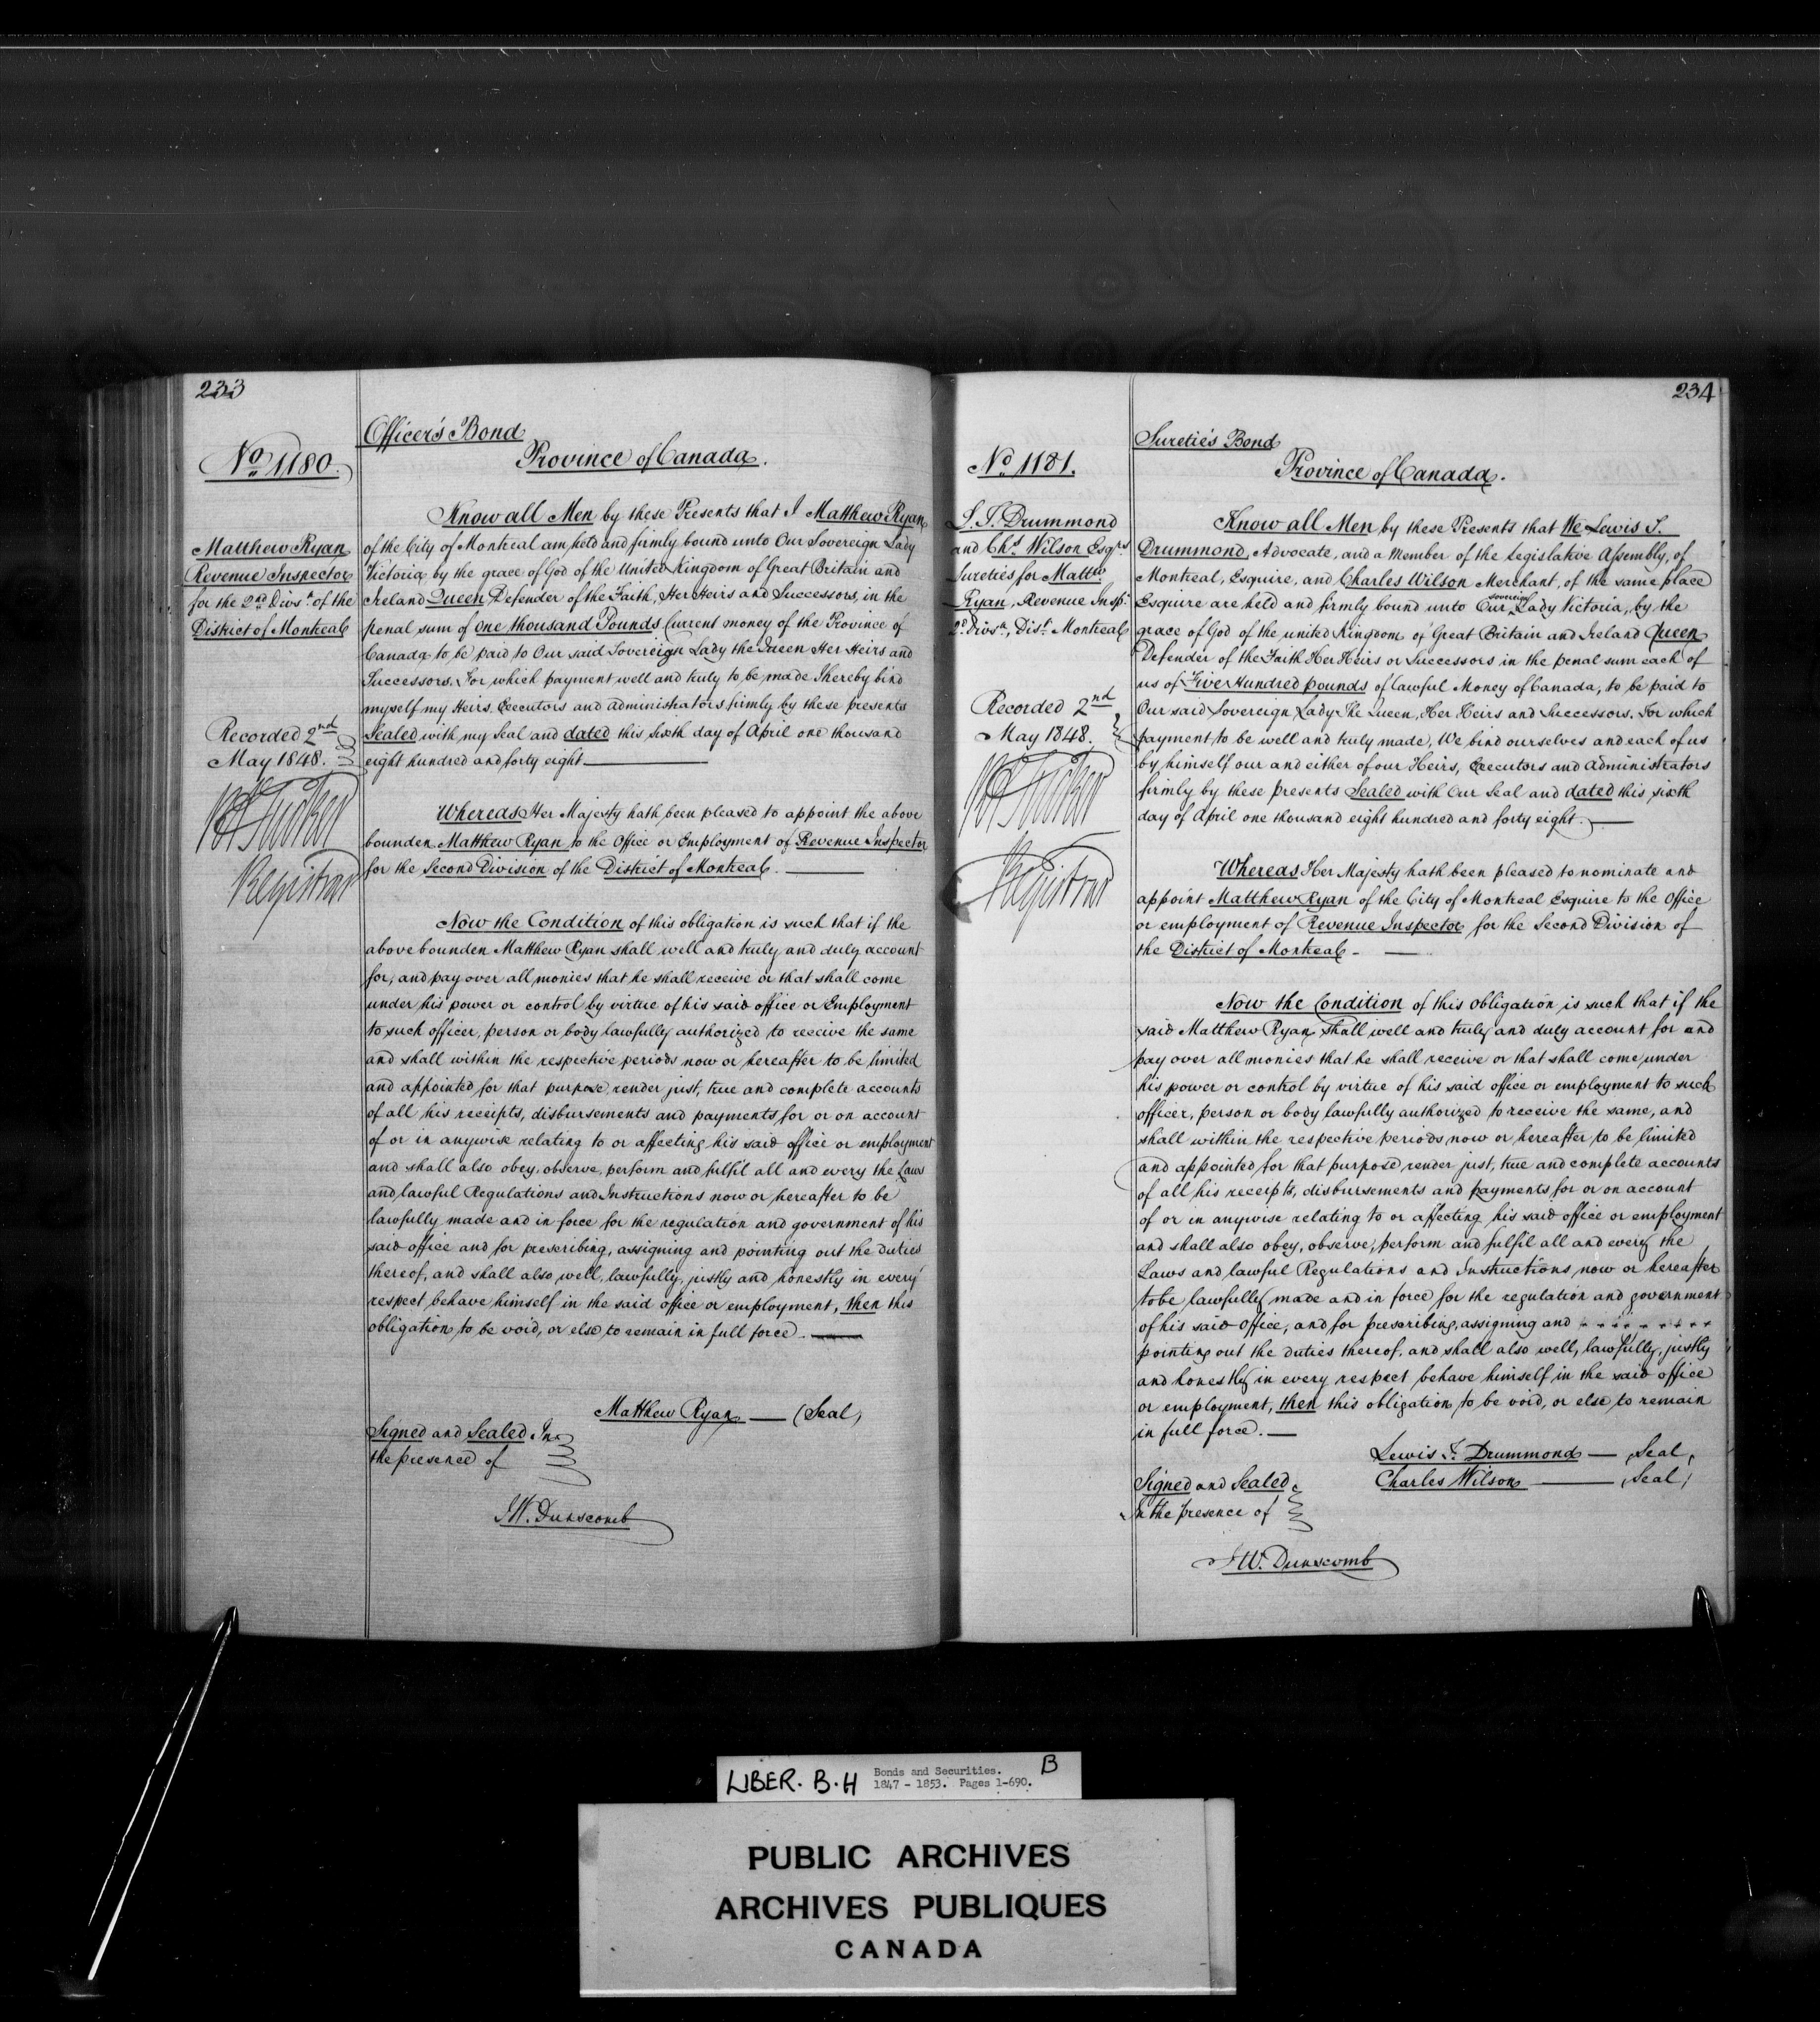 233
Officer's Bond
No 1180.
Province of Canada.
Know all Men by these Presents that I Matthew Ryan
Matthew Ryan
Revenue Inspector
for the 2nd Divsn of the
District of Montreal
of the City of Montreal am held and firmly bound unto Our Sovereign Lady
Victoria by the grace of God of the United Kingdom of Great Britain and
Ireland Queen Defender of the Faith, Her Heirs and Successors, in the
penal sum of One thousand Pounds Current money of the Province of
Canada to be paid to Our said Sovereign Lady the Queen Her Heirs and
Successors. For which payment well and truly to be made I hereby bind
myself my Heirs, Executors and administrators firmly by these presents
Sealed with my Seal and dated this sixth day of April one thousand
eight hundred and forty eight
Recorded 2nd
May 1848.
Registrar
Whereas Her Majesty hath been pleased to appoint the above
bounden Matthew Ryan to the Office or Employment of Revenue Inspector
for the Second Division of the District of Montreal.
Now the Condition of this obligation is such that if the
above bounden Matthew Ryan shall well and truly and duly account
for, and pay over all monies that he shall receive or that shall come
under his power or control by virtue of his said office or Employment
to such officer, person or body lawfully authorized to receive the same
and shall within the respective periods now or hereafter to be limited
and appointed for that purpose, render just, true and complete accounts
of all his receipts, disbursements and payments for or on account
of or in anywise relating to or affecting his said office or employment
and shall also obey, observe, perform and fulfil all and every the Laws
and lawful Regulations and Instructions now or hereafter to be
lawfully made and in force for the regulation and government of his
said office and for prescribing, assigning and pointing out the duties
thereof, and shall also well, lawfully, justly and honestly in every
respect behave himself in the said office or employment, then this
obligation to be void, or else to remain in full force.
Matthew Ryan (Seal)
Signed and Sealed In
the presence of
J W. Dunscomb
234
Suretie's Bond
No 1181.
Province of Canada.
L. T. Drummond
and Chs Wilson Esqrs
Sureties for Mattw
Ryan, Revenue Inspr
2d Divsn, Dist Montreal
Know all Men by these Presents that We Lewis T.
Drummond, Advocate, and a Member of the Legislative Assembly, of
Montreal, Esquire, and Charles Wilson Merchant, of the same place
Esquire are held and firmly bound unto Our sovereign Lady Victoria, by the
grace of God of the united Kingdom of Great Britain and Ireland Queen
Defender of the Faith Her Heirs or Successors in the penal sum each of
us of Five Hundred pounds of lawful Money of Canada, to be paid to
Our said Sovereign Lady The Queen, Her Heirs and Successors. For which
payment to be well and truly made, We bind ourselves and each of us
by himself our and either of our Heirs, Executors and Administrators
firmly by these presents Sealed with Our Seal and dated this sixth
day of April one thousand eight hundred and forty eight.
Recorded 2nd
May 1848.
Registrar
Whereas Her Majesty hath been pleased to nominate and
appoint Matthew Ryan of the City of Montreal Esquire to the Office
or employment of Revenue Inspector for the Second Division of
the District of Montreal
Now the Condition of this obligation is such that if the
said Matthew Ryan shall well and truly and duly account for and
pay over all monies that he shall receive or that shall come under
his power or control by virtue of his said office or employment to such
officer, person or body lawfully authorized to receive the same, and
shall within the respective periods now or hereafter to be limited
and appointed for that purpose render just, true and complete accounts
of all his receipts, disbursements and payments for or on account
of or in anywise relating to or affecting his said office or employment
and shall also obey, observe, perform and fulfil all and every the
Laws and lawful Regulations and Instructions now or hereafter
to be lawfully made and in force for the regulation and government
of his said office, and for prescribing, assigning and
pointing out the duties thereof, and shall also well, lawfully, justly
and honestly in every respect behave himself in the said office
or employment, then this obligation to be void, or else to remain
in full force.
Lewis T. Drummond Seal,
Charles Wilson Seal,
Signed and Sealed
In the presence of
J W. Dunscomb
LIBER. B.H
Bonds and Securities.
1847 - 1853. Pages 1-690.
B
PUBLIC ARCHIVES
ARCHIVES PUBLIQUES
CANADA